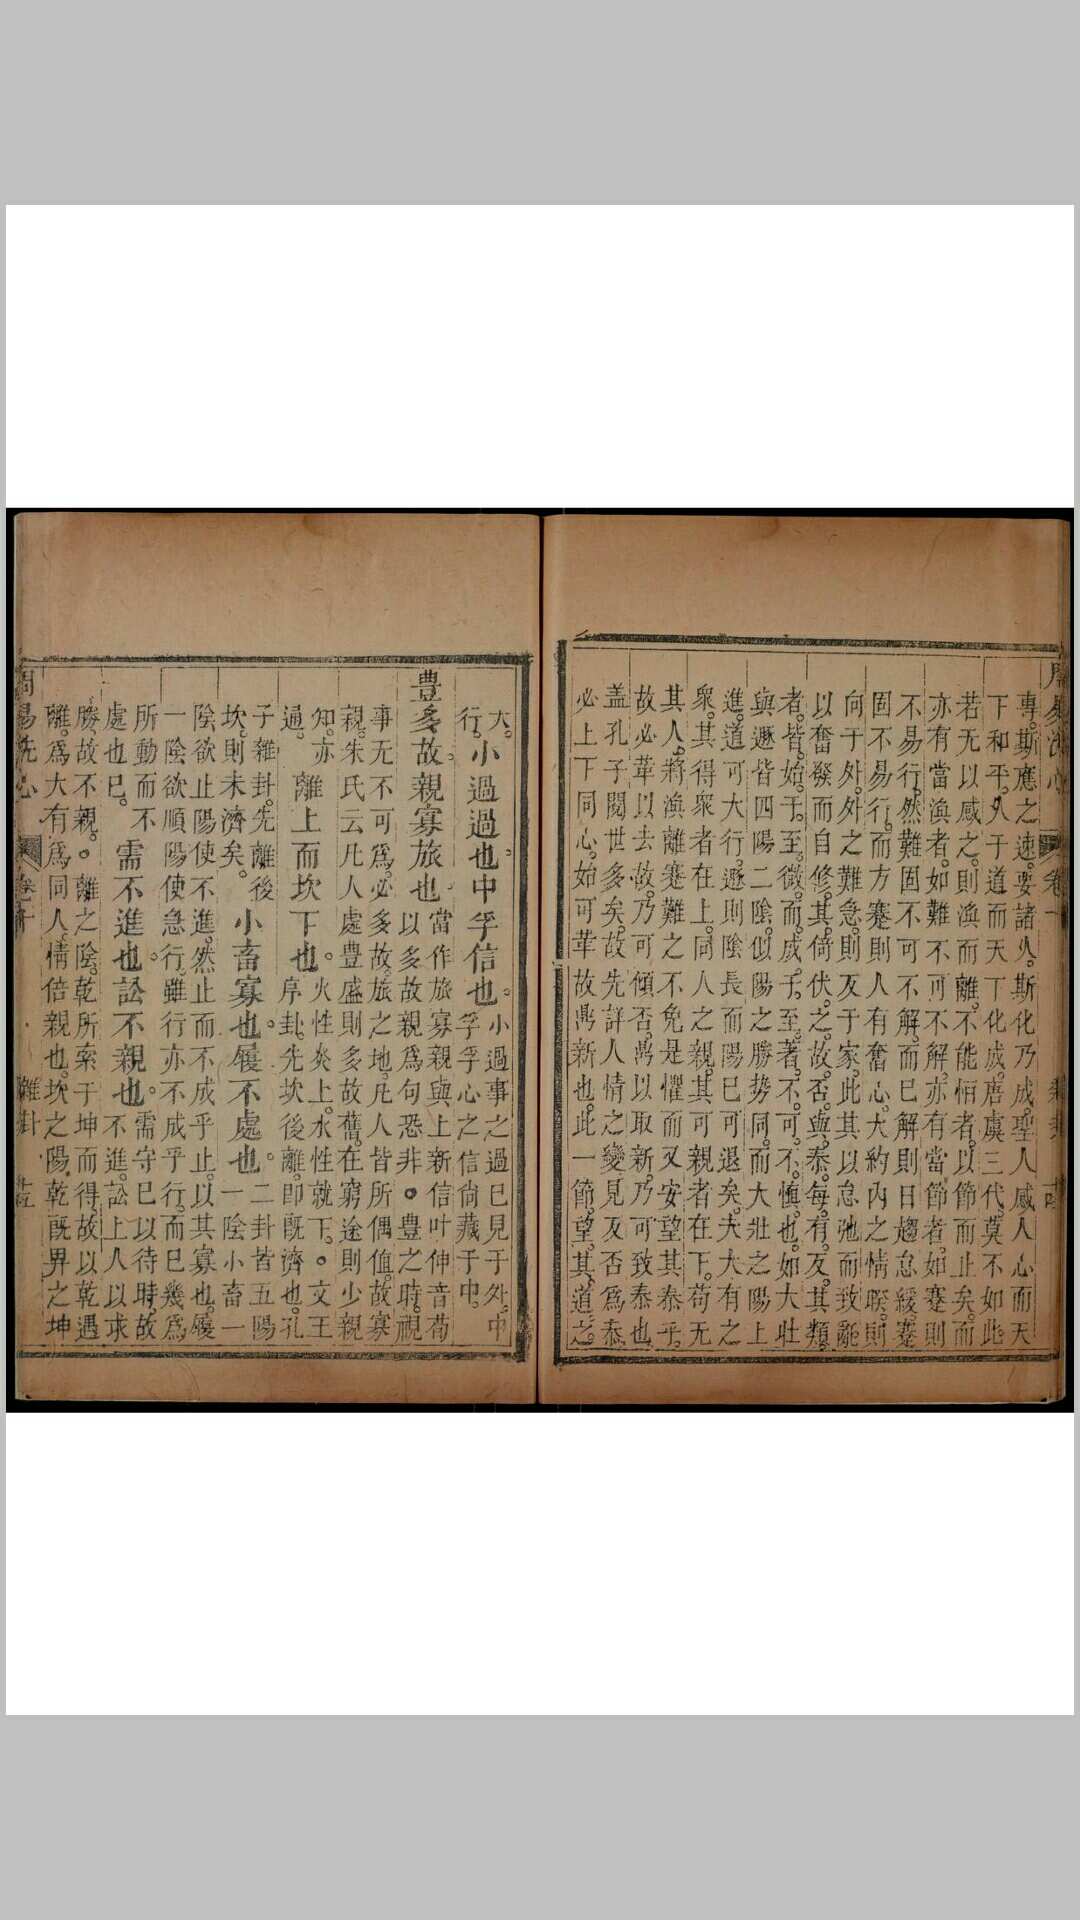 專斯應之速要諸久斯化乃成聖人感人心而天
下和平久于道而天下化成唐虞三代莫不如此
若无以感之則渙而離不能恒者以節而止矣而
亦有當渙者如難不可不解亦有當節者如蹇則
不易行然難固不可不解而已解則日趨怠緩蹇
固不易行而方蹇則人有奮心大約內之情睽則
向于外外之難急則反于家此其以怠弛而致
以奮發而自修其倚伏之故否與泰每有反其類
者皆始于至微而成于至著不可不慎也如大壯
與遯皆四陽二陰似陽之勝勢同而大壯之陽上
進道可大行遯則陰長而陽已可退矣夫大有之
衆其得衆者在上同人之親其可親者在下苟无
其人將渙離蹇難之不免是懼而又安望其泰乎
故必革以去故乃可傾否鼎以取新乃可致泰也
蓋孔子閱世多矣故先詳人情之變見反否爲泰
必上下同心始可革故鼎新也此一節望其道之
大小過過也中孚信也小過事之過已見于外中
行孚孚心之信尙藏于中
豊多故親寡旅也當作旅寡親與上新信叶伸音荀
以多故親爲句恐非豊之時視
事无不可爲必多故旅之地凡人皆所偶值故寡
親朱氏云凡人處豊盛則多故舊在窮途則少親
知亦通離上而坎下也火性炎上水性就下文王
序卦先坎後離即旣濟也孔
子雜卦先離後
坎則未濟矣小畜寡也履不處也二卦皆五陽
一陰小畜一
陰欲止陽使不進然止而不成乎止以其寡也履
一陰欲順陽使急行雖行亦不成乎行而已幾爲
所動而不
處也已需不進也訟不親也需守已以待時故
不進訟上人以求
勝故不親離之陰乾所索于坤而得故以乾遇
離爲大有爲同人情倍親也坎之陽乾旣畀之坤
周易洗心 卷十 雜卦